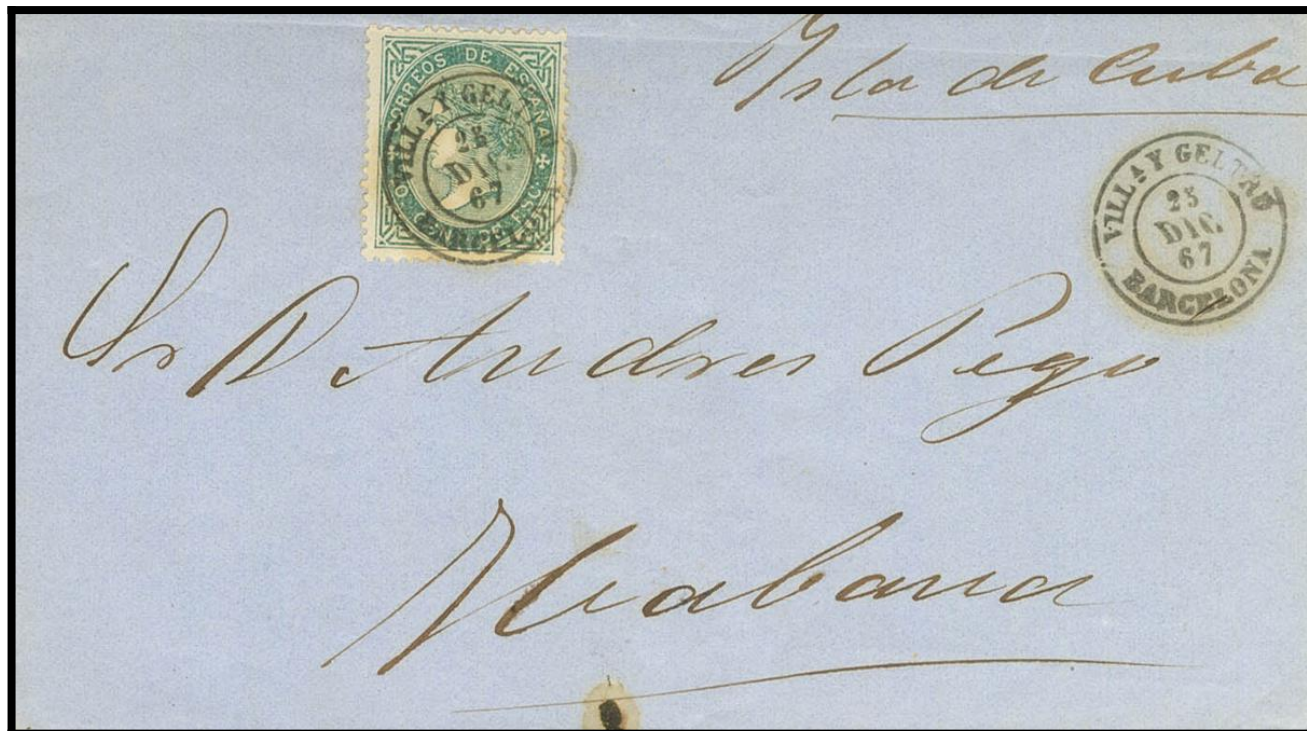 Ysla de Cuba
CORREOS DE ESPAÑA
VILLA Y GELTRU
25
DIC.
67
BARCELONA
VILLA Y GELTRU
25
DIC.
67
BARCELONA
Sr D. Andres Pego
Habana